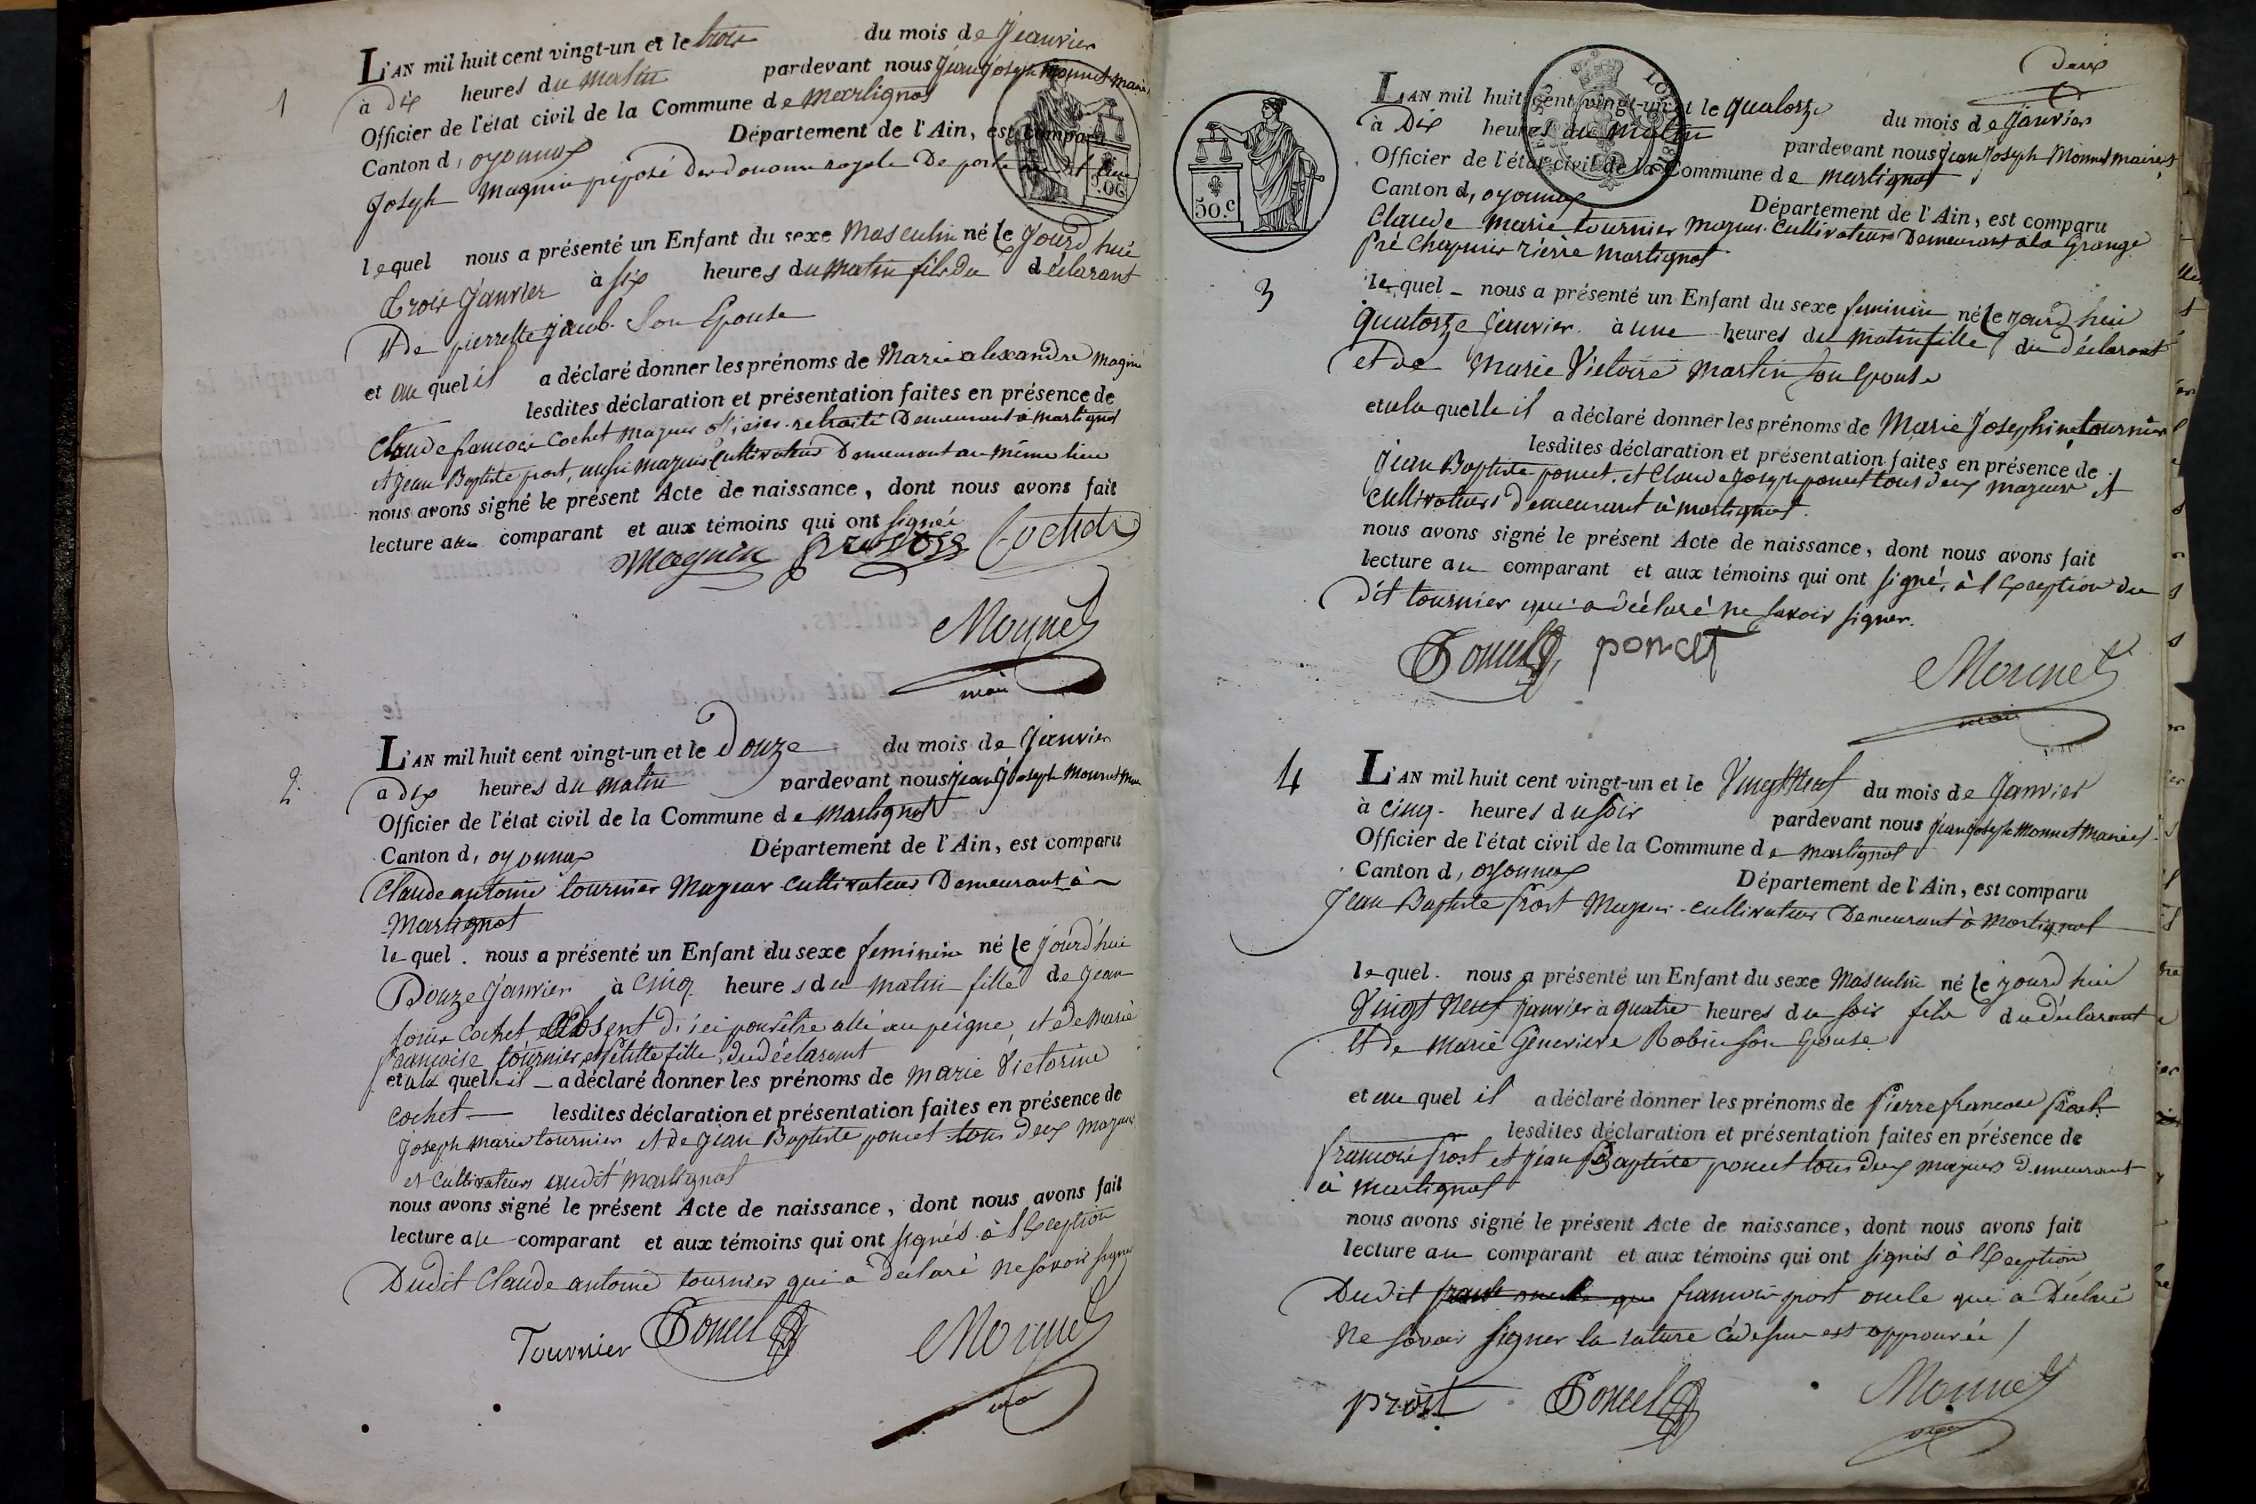 1
L'AN mil huit cent vingt-un et le trois du mois de Janvier
à Dix heures du matin pardevant nous Jean Joseph Monnet Maire
Officier de l'état civil de la Commune de Martignat
Canton d, oyonnax Département de l'Ain, est comparu
Joseph Magnin préposé des douanne royale De poste
lequel nous a présenté un Enfant du sexe Masculin né le Jourd'hui
trois Janvier à six heures du matin fils du déclarant
Et de pierrette Jacob Son Epouse
et au quel il a déclaré donner les prénoms de Marie alexandre Magnin
lesdites déclaration et présentation faites en présence de
Claude francois Cochet majeur officier retraité Demeurant à martignat
et Jean Baptiste prost, aussi majeur Cultivateur Demeurant au même lieu
nous avons signé le présent Acte de naissance, dont nous avons fait
lecture au comparant et aux témoins qui ont signée
Magnin prost Cochet
Monnet
maire
2
L'AN mil huit cent vingt-un et le Douze du mois de Janvier
a dix heures du matin pardevant nous Jean Joseph Monnet Maire
Officier de l'état civil de la Commune de Martignat
Canton d, oyonnax Département de l'Ain, est comparu
Claude antoine tournier Majeur cultivateur Demeurant à
Martignat
lequel nous a présenté un Enfant du sexe feminin né le jourd'hui
Douze Janvier à Cinq heures du matin fille de Jean
louis Cochet absent d'ici pour être allé au peigne, et de Marie
françoise tournier, et petitte fille, du déclarant
et a la quelle il a déclaré donner les prénoms de marie Victorine
Cochet lesdites déclaration et présentation faites en présence de
Joseph marie tournier et de Jean Baptiste poncet tous deux majeur
et Cultivateurs audit Martignat
nous avons signé le présent Acte de naissance, dont nous avons fait
lecture au comparant et aux témoins qui ont signés à l'Exception
Dudit Claude antoine tournier qui a déclaré ne savoir signer
Tournier Poncet Monnet
maire
Deux
50.c
3
L'AN mil huit cent vingt-un et le quatorze du mois de Janvier
à Dix heures du matin pardevant nous Jean Joseph Monnet maire et
Officier de l'état civil de la Commune de Martignat
Canton d, oyonnax Département de l'Ain, est comparu
Claude Marie tournier Majeur Cultivateur Demeurant a la Grange
pré Chapuis rière Martignat
lequel nous a présenté un Enfant du sexe feminin né le jourd'hui
quatorze Janvier à une heures du matin fille du déclarant
et de Marie Victoire Martin son Epouse
et a la quelle il a déclaré donner les prénoms de Marie Josephine tournier
lesdites déclaration et présentation faites en présence de
Jean Baptiste poncet et Claude Joseph poncet tous deux majeur et
Cultivateurs demeurant à martignat
nous avons signé le présent Acte de naissance, dont nous avons fait
lecture au comparant et aux témoins qui ont signé, à l'Exception du
dit tournier qui a déclaré ne savoir signer.
Poncet poncet
Monnet
maire
4
L'AN mil huit cent vingt-un et le Vingt Neuf du mois de Janvier
à cinq heures du soir pardevant nous Jean Joseph Monnet Maire et
Officier de l'état civil de la Commune de martignat
Canton d, oyonnax Département de l'Ain, est comparu
Jean Baptiste Prost Majeur cultivateur Demeurant à Martignat
lequel nous a présenté un Enfant du sexe Masculin né le jourd'hui
Vingt Neuf Janvier à quatre heures du soir fils du déclarant
Et de Marie Genevieve Robin son Epouse
et au quel il a déclaré donner les prénoms de Pierre francois Prost
lesdites déclaration et présentation faites en présence de
francois Prost et Jean Baptiste poncet tous deux majeurs demeurant
à martignat
nous avons signé le présent Acte de naissance, dont nous avons fait
lecture au comparant et aux témoins qui ont signés à l'Exception
Dudit francois prost oncle qui a Déclaré
Ne savoir signer la rature ci dessus est approuvée /
prost Poncet Monnet
maire